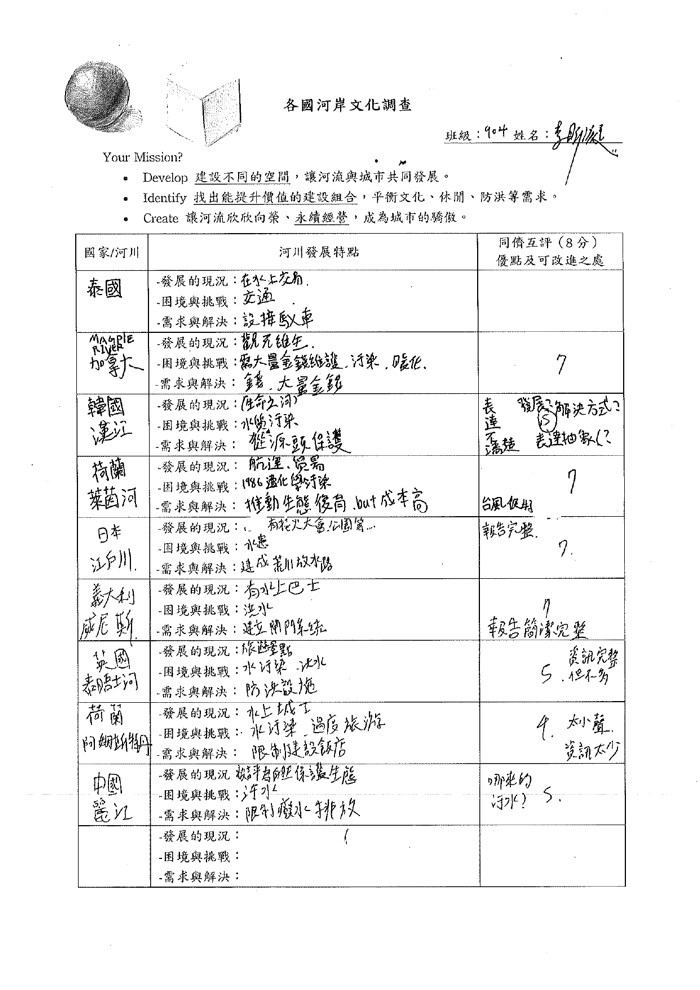 各國河岸文化調查
班級：904 姓名：李
Your Mission?
• Develop 建設不同的空間，讓河流與城市共同發展。
• Identify 找出能提升價值的建設組合，平衡文化、休閒、防洪等需求。
• Create 讓河流欣欣向榮、永續經營，成為城市的驕傲。
國家/河川 河川發展特點 同儕互評（8分）
優點及可改進之處
泰國
-發展的現況：在水上交易.
-困境與挑戰：交通
-需求與解決：設接駁車
MAGPIE
RIVER
加拿大
-發展的現況：觀光維生.
-困境與挑戰：需大量金錢維護、汙染、
-需求與解決：錢、大量金錢
7
韓國
漢江
-發展的現況：(生命之河)
-困境與挑戰：水汙染
-需求與解決：從源頭保護
表達不清楚
發展?解決方式?
5
表達抽象(?
荷蘭
萊茵河
-發展的現況：航運、貿易
-困境與挑戰：1986 化學汙染
-需求與解決：推動生態復育.but成本高
7
台風
日本
江戶川.
-發展的現況：有花火大會公園
-困境與挑戰：水患
-需求與解決：建成荒川放水路
報告完整.
7.
義大利
威尼斯.
-發展的現況：有水上巴士
-困境與挑戰：洪水
-需求與解決：建立閘門系統
7
報告簡潔完整
英國
泰晤士河
-發展的現況：旅遊景點
-困境與挑戰：水汙染、洪水
-需求與解決：防洪設施
5 資訊完整
.但不多
荷蘭
阿姆斯特丹
-發展的現況：水上
-困境與挑戰：水汙染、過度旅游
-需求與解決：限制建設飯店
4. 太小聲.
資訊太少
中國
麗江
-發展的現況 保護生態
-困境與挑戰：汙水
-需求與解決：限制廢水排放
哪來的
汙水? 5.
-發展的現況：
-困境與挑戰：
-需求與解決：